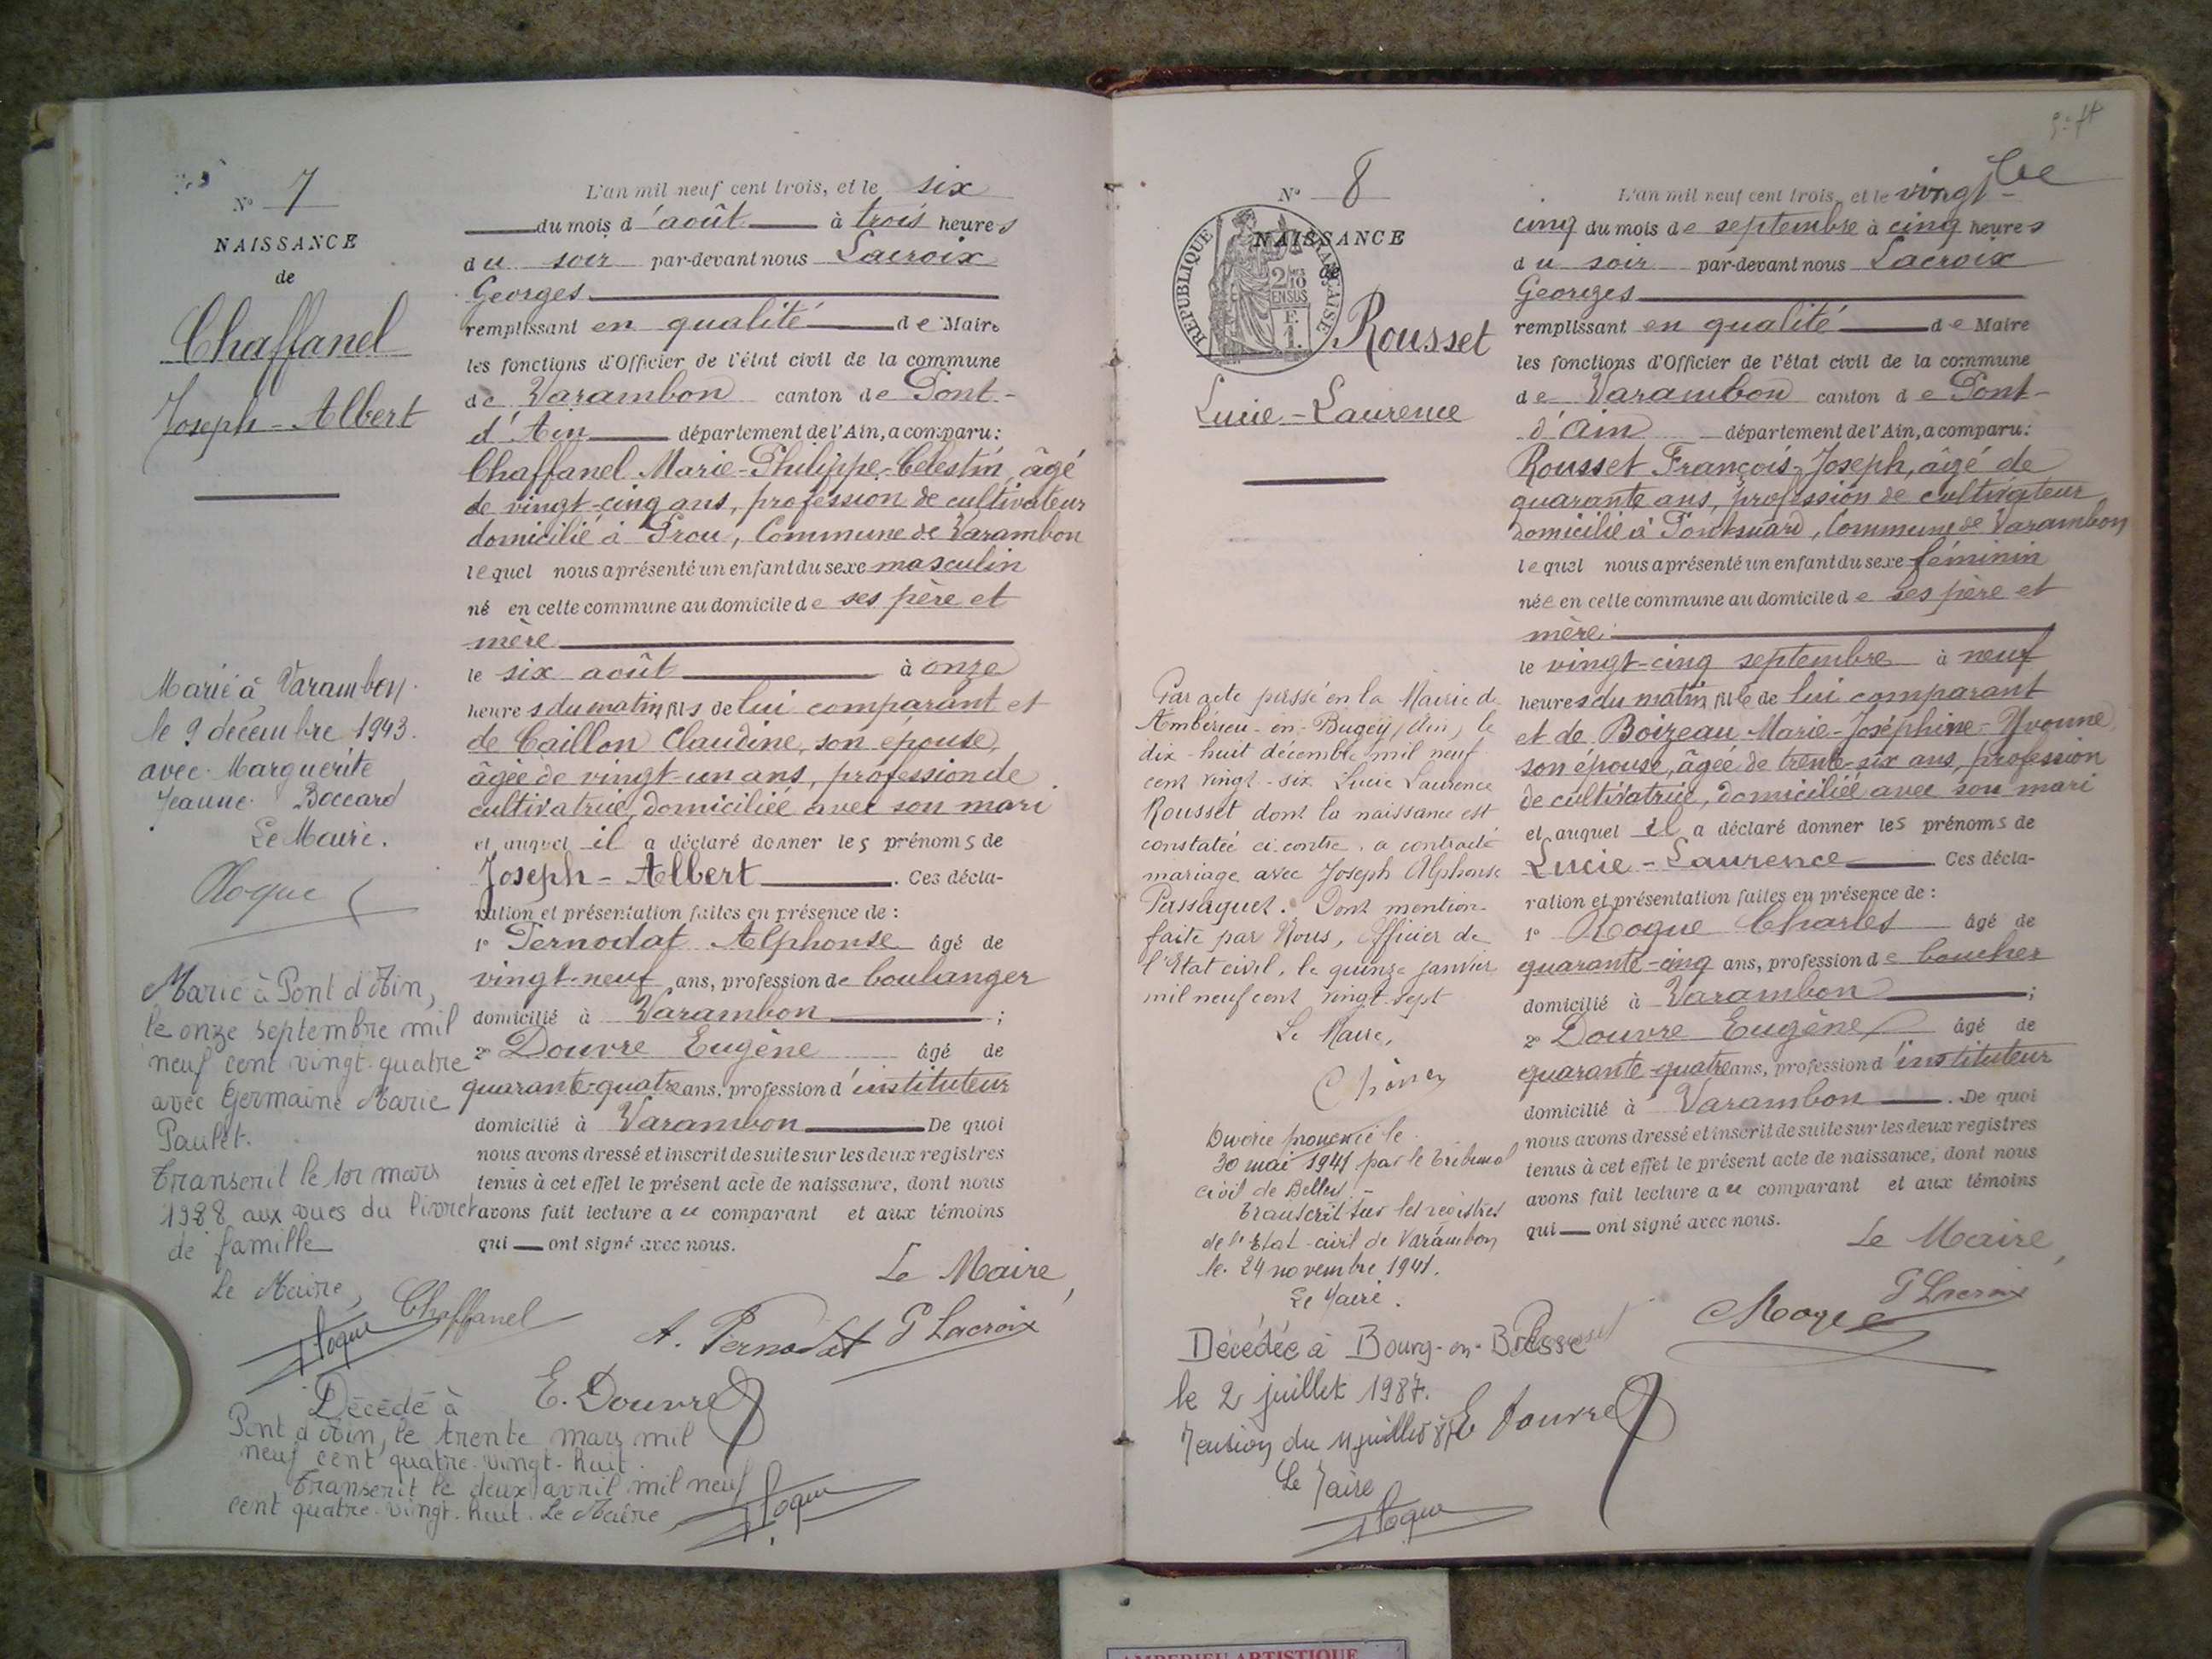 N° 7
NAISSANCE
de
Chaffanel
Joseph-Albert
Marié à Varambon
le 9 décembre 1943.
avec Marguerite
Jeanne Boccard
Le Maire.
Roque
Marié à Pont d'Ain,
le onze septembre mil
neuf cent vingt-quatre
avec Germaine Marie
Paulet.
Transcrit le 1er mars
1988 aux vues du livret
de famille
Le Maire,
L'an mil neuf cent trois, et le six
du mois d'août à trois heures
du soir par-devant nous Lacroix
Georges
remplissant en qualité de Maire
les fonctions d'Officier de l'état civil de la commune
de Varambon canton de Pont-
d'Ain département de l'Ain, a comparu:
Chaffanel Marie-Philippe-Célestin, âgé
de vingt-cinq ans, profession de cultivateur
domicilié à Prou, Commune de Varambon
lequel nous a présenté un enfant du sexe masculin
né en cette commune au domicile de ses père et
mère
le six août à onze
heures du matin, fils de lui comparant et
de Caillon Claudine, son épouse,
âgée de vingt-un ans, profession de
cultivatrice, domiciliée avec son mari
et auquel il a déclaré donner les prénoms de
Joseph-Albert. Ces décla-
ration et présentation faites en présence de :
1° Pernodat Alphonse âgé de
vingt-neuf ans, profession de boulanger
domicilié à Varambon ;
2° Douvre Eugène âgé de
quarante-quatre ans, profession d'instituteur
domicilié à Varambon De quoi
nous avons dressé et inscrit de suite sur les deux registres
tenus à cet effet le présent acte de naissance, dont nous
avons fait lecture au comparant et aux témoins
qui ont signé avec nous.
Le Maire,
Chaffanel
A. Pernodat G Lacroix
Roque
E. Douvre
Décédé à
Pont d'Ain, le trente mars mil
neuf cent quatre-vingt-huit.
Transcrit le deux avril mil neuf
cent quatre-vingt-huit. Le Maire
Roque
N° 8
RÉPUBLIQUE FRANÇAISE
2/10 EN SUS
F. 1.
NAISSANCE
de
Rousset
Lucie-Laurence
Par acte passé en la Mairie d
Ambérieu-en-Bugey (Ain) le
dix-huit décembre mil neuf
cent vingt-six Lucie Laurence
Rousset dont la naissance est
constatée ci contre, a contracté
mariage avec Joseph Alphonse
Passaquet. Dont mention
faite par Nous, Officier de
l'Etat civil, le quinze janvier
mil neuf cent vingt-sept
Le Maire,
Divorce prononcé le
30 mai 1941 par le Tribunal
civil de Belley.-
Transcrit sur les registres
de l'Etat-civil de Varambon
le 24 novembre 1941.
Le Maire.
Décédée à Bourg-en-Bresse
le 2 juillet 1987.
du 11 juillet 87
Le Maire
Roque
L'an mil neuf cent trois, et le vingt-
cinq du mois de septembre à cinq heures
du soir par-devant nous Lacroix
Georges
remplissant en qualité de Maire
les fonctions d'Officier de l'état civil de la commune
de Varambon canton de Pont-
d'Ain département de l'Ain, a comparu:
Rousset François-Joseph, âgé de
quarante ans, profession de cultivateur
domicilié à, Commune de Varambon
lequel nous a présenté un enfant du sexe féminin
née en cette commune au domicile de ses père et
mère
le vingt-cinq septembre à neuf
heures du matin, fille de lui comparant
et de Boizeau Marie-Joséphine-Yvonne
son épouse, âgée de trente-six ans, profession
de cultivatrice, domiciliée avec son mari
et auquel il a déclaré donner les prénoms de
Lucie-Laurence Ces décla-
ration et présentation faites en présence de :
1° Roque Charles âgé de
quarante-cinq ans, profession de boucher
domicilié à Varambon ;
2° Douvre Eugène âgé de
quarante-quatre ans, profession d'instituteur
domicilié à Varambon. De quoi
nous avons dressé et inscrit de suite sur les deux registres
tenus à cet effet le présent acte de naissance, dont nous
avons fait lecture au comparant et aux témoins
qui ont signé avec nous.
Le Maire,
G Lacroix
Rousset
C Roque
E Douvre
AMBERIEU ARTISTIQUE